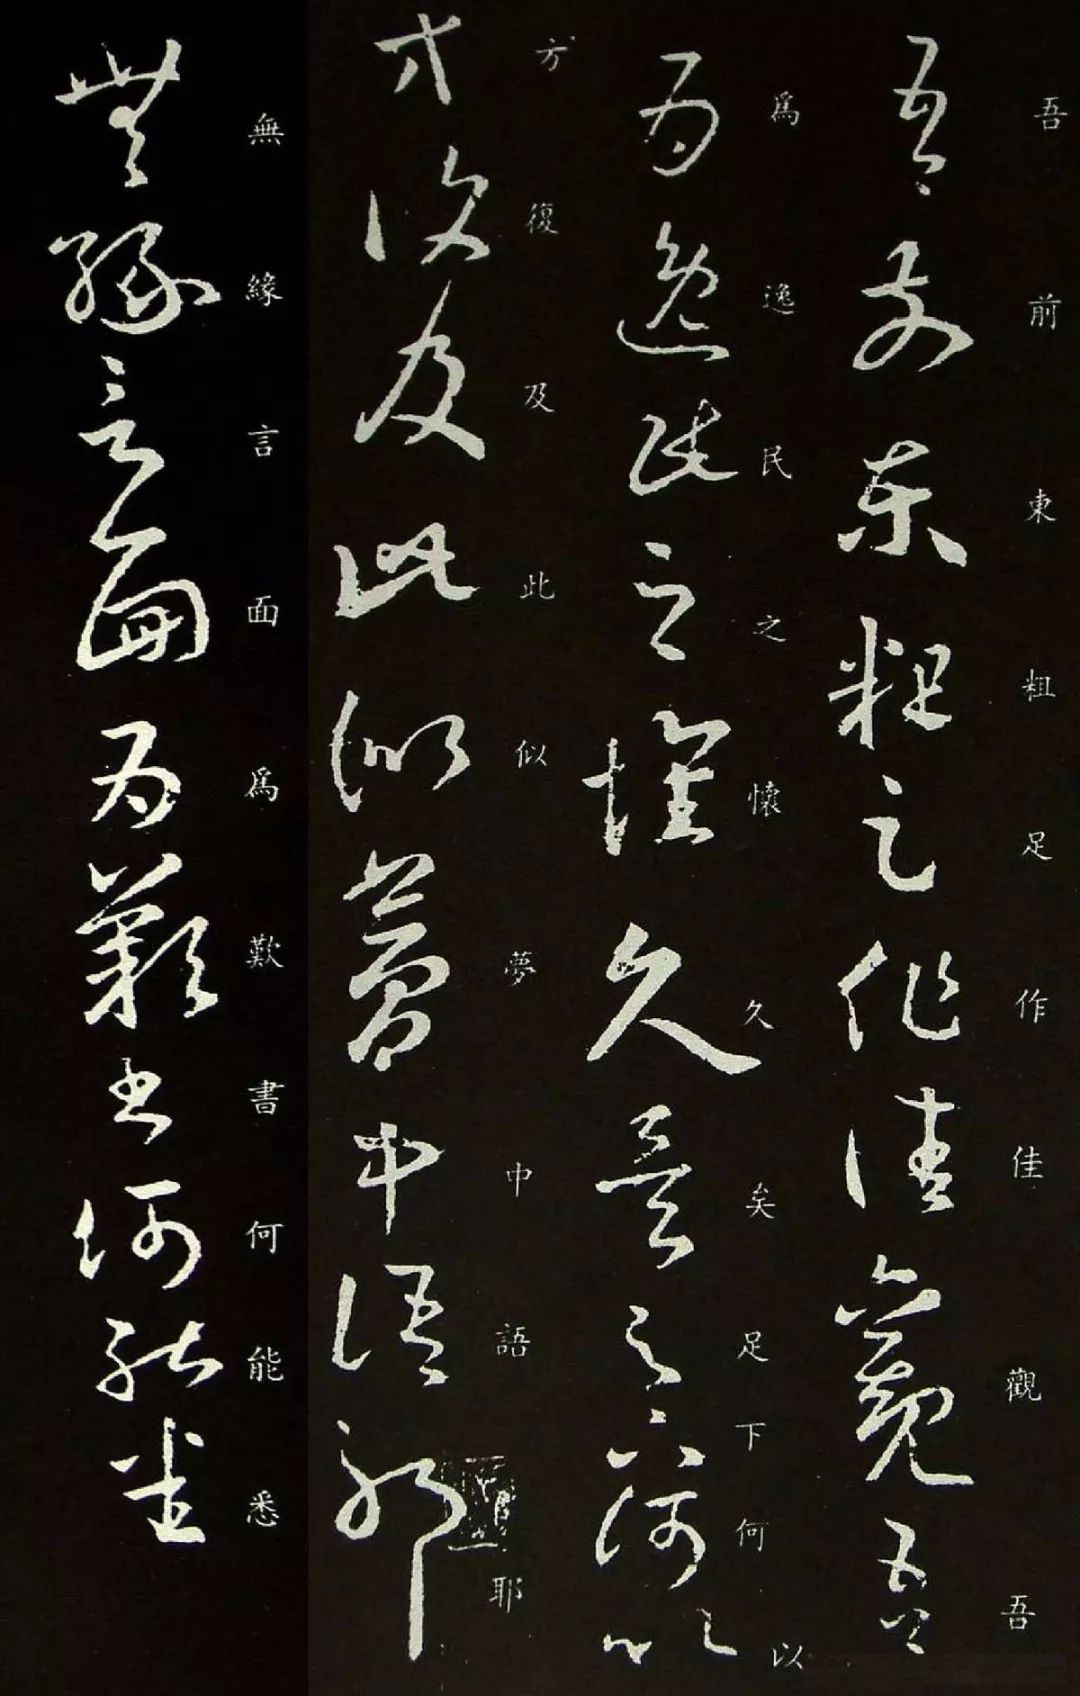 吾前東粗足作佳觀吾
為逸民之懷久矣足下何以
方復及此似夢中語耶
無緣言面為歎書何能悉